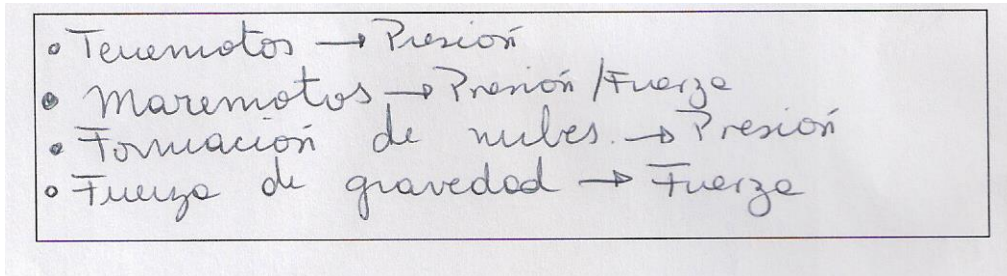 • Terremotos → Presión
• Maremotos → Presión/Fuerza
• Formación de nubes. → Presión
• Fuerza de gravedad → Fuerza